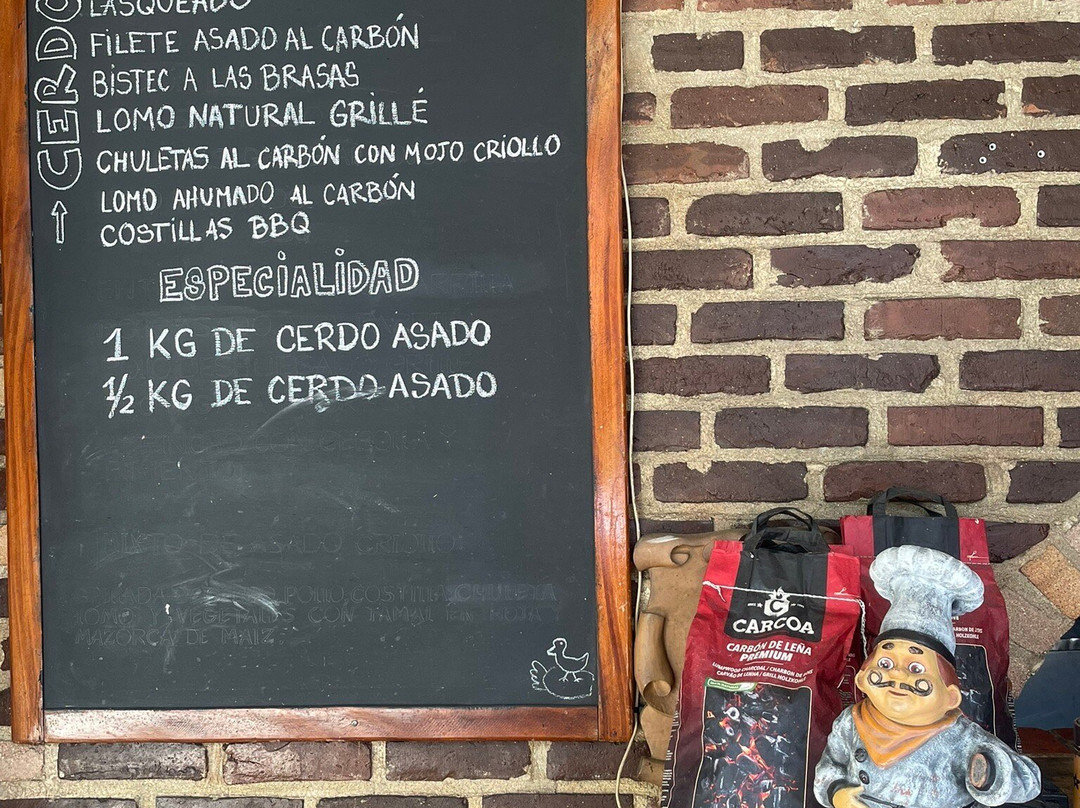 LASQUEADO
CERDO
FILETE ASADO AL CARBÓN
BISTEC A LAS BRASAS
LOMO NATURAL GRILLÉ
CHULETAS AL CARBÓN CON MOJO CRIOLLO
LOMO AHUMADO AL CARBÓN
COSTILLAS BBQ
ESPECIALIDAD
1 KG DE CERDO ASADO
½ KG DE CERDO ASADO
DE ASADO CRIOLLO
POLLO, COSTILLA, CHULETA
VEGETALES CON TAMAL EN HOJA
MAZORCA DE MAÍZ
CARCOA
CARBÓN DE LEÑA
PREMIUM
LUMPWOOD CHARCOAL / CHARBON DE BOIS
CARVÃO DE LENHA / GRILL HOLZKOHLE